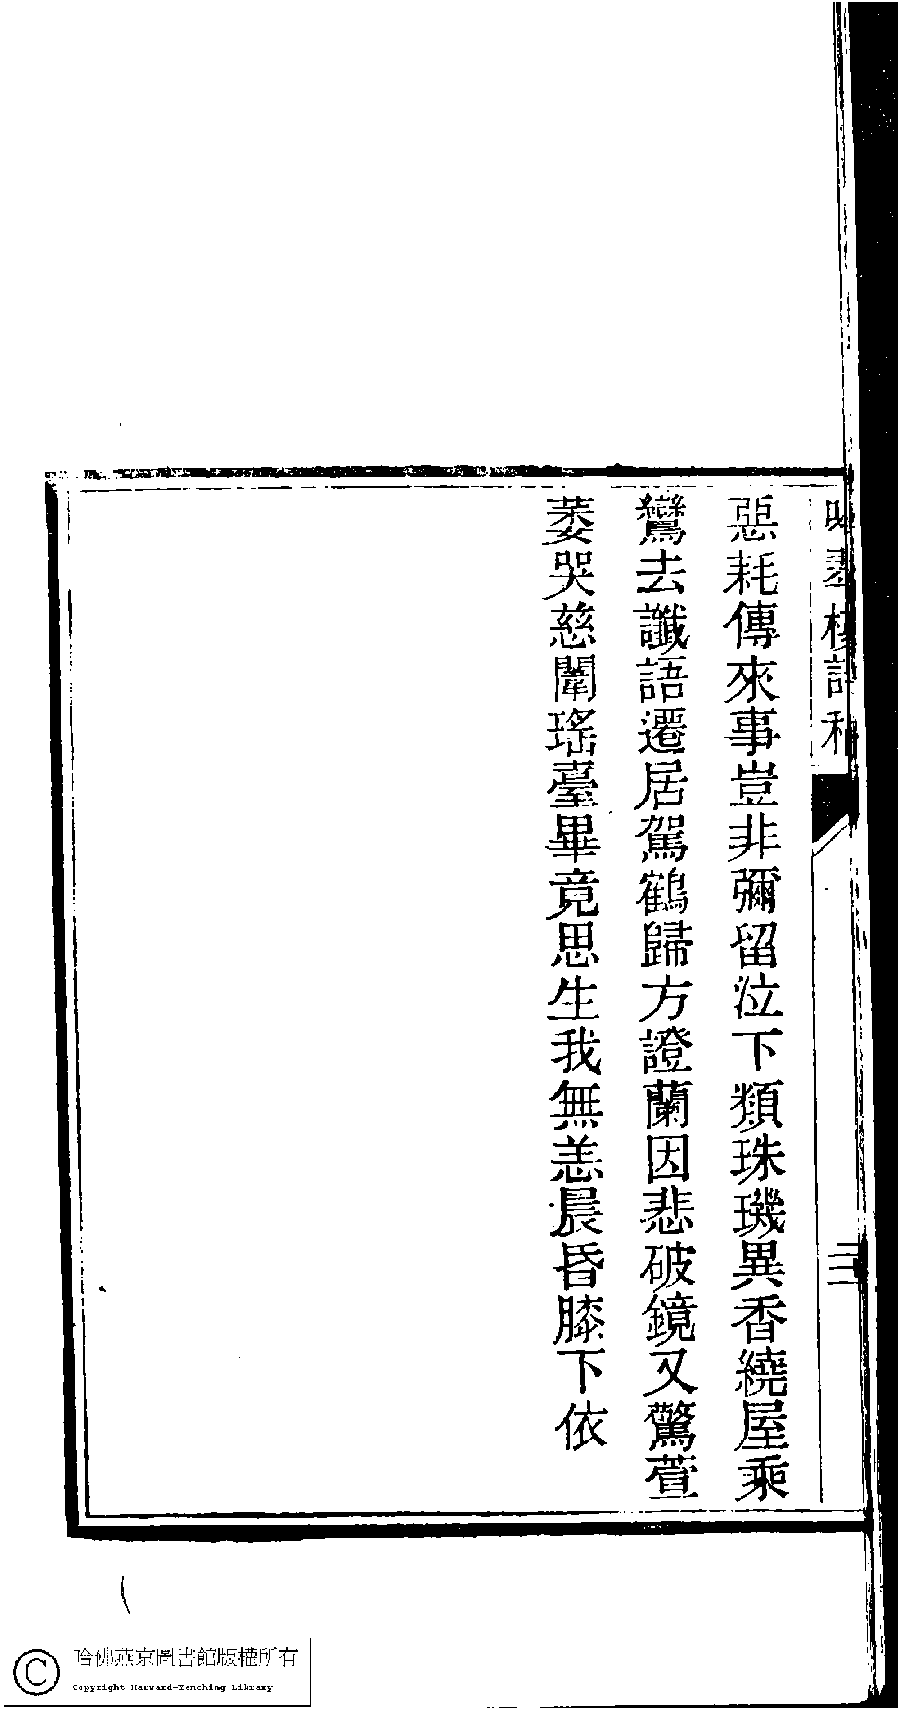 惡耗傳來事豈非彌留泣下類珠璣異香繞屋乘
鸞去讖語遷居駕鶴歸方證蘭因悲破鏡又驚萱
萎哭慈闈瑤臺畢竟思生我無恙晨昏膝下依
三
哈佛燕京圖書館版權所有
Copyright Harvard-Yenching Library